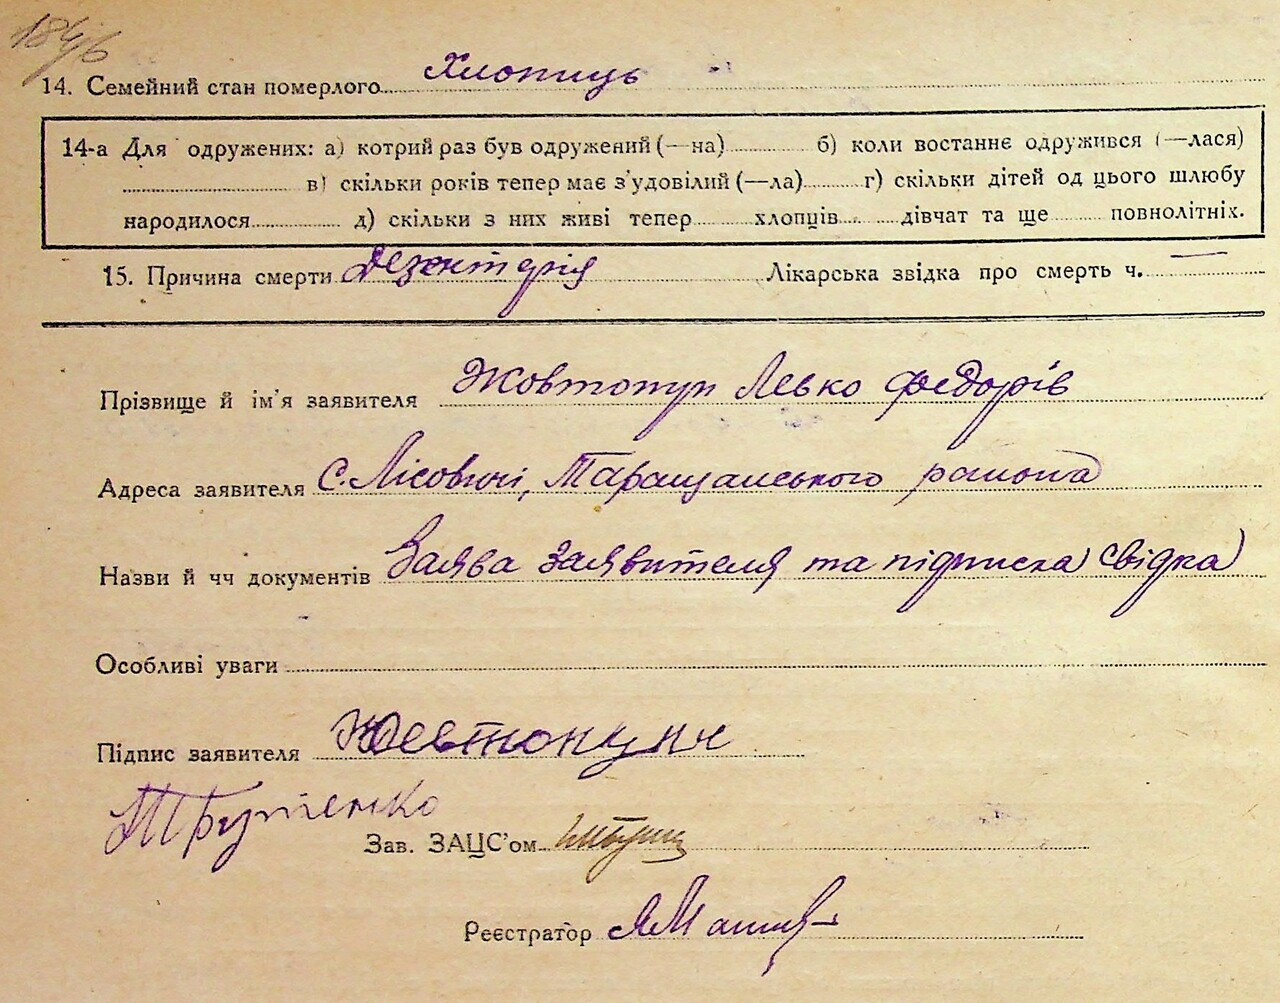 184/6
14. Семейний стан померлого Хлопиць
14-а Для одружених: а) котрий раз був одружений (—на) б) коли востаннє одружився (—лася)
в) скільки років тепер має з'удовілий (—ла) г) скільки дітей од цього шлюбу
народилося д) скільки з них живі тепер хлопців дівчат та ще повнолітніх.
15. Причина смерти Дезентерія Лікарська звідка про смерть ч. —
Прізвище й ім'я заявителя Жовтопуп Левко Федорів
Адреса заявителя с. Лісовичі, Таращанського района
Назви й чч документів Заява заявителя та підписка свідка
Особливі уваги
Підпис заявителя
Зав. ЗАЦС'ом
Реєстратор